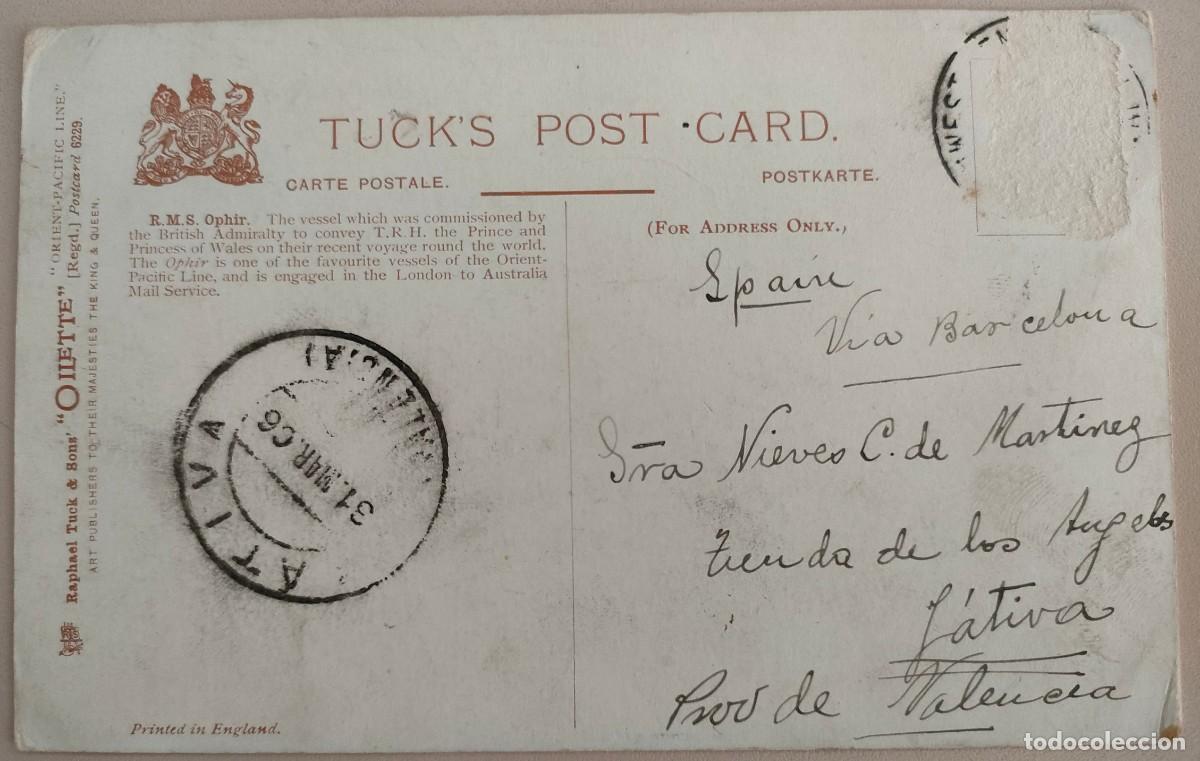 TUCK'S POST CARD.
CARTE POSTALE.
POSTKARTE.
R.M.S. Ophir. The vessel which was commissioned by
the British Admiralty to convey T.R.H. the Prince and
Princess of Wales on their recent voyage round the world.
The Ophir is one of the favourite vessels of the Orient-
Pacific Line, and is engaged in the London to Australia
Mail Service.
(FOR ADDRESS ONLY.,
Spain
Via Barcelona
Sra Nieves C. de Martinez
Tienda de los Angeles
Játiva
Prov de Valencia
Raphael Tuck & Sons' "OILETTE" [Regd.] Postcard 6229.
"ORIENT-PACIFIC LINE."
ART PUBLISHERS TO THEIR MAJESTIES THE KING & QUEEN.
ATIVA
31.MAR.06
Printed in England.
todocoleccion